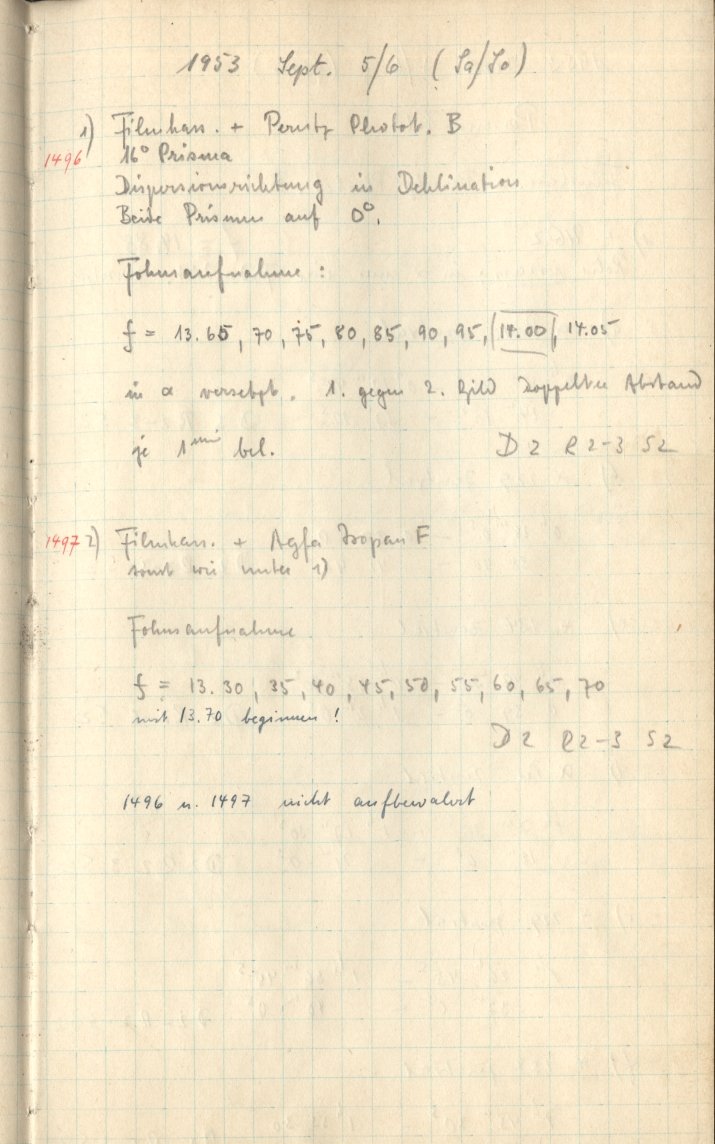 1953 Sept. 5/6 (Sa/So)
1) Filmkass. + Perutz Photot. B
1496 16° Prisma
Dispersionsrichtung in Deklination
Beide Prismen auf 0°.
Fokusaufnahme:
f = 13.65, 70, 75, 80, 85, 90, 95, 14.00, 14.05
in α versetzt. 1. gegen 2. Bild doppelter Abstand
je 1 min bel. D2 R2-3 S2
1497 2) Filmkass. + Agfa Isopan F
sonst wie unter 1)
Fokusaufnahme
f = 13.30, 35, 40, 45, 50, 55, 60, 65, 70
mit 13.70 beginnen!
D2 R2-3 S2
1496 u. 1497 nicht aufbewahrt